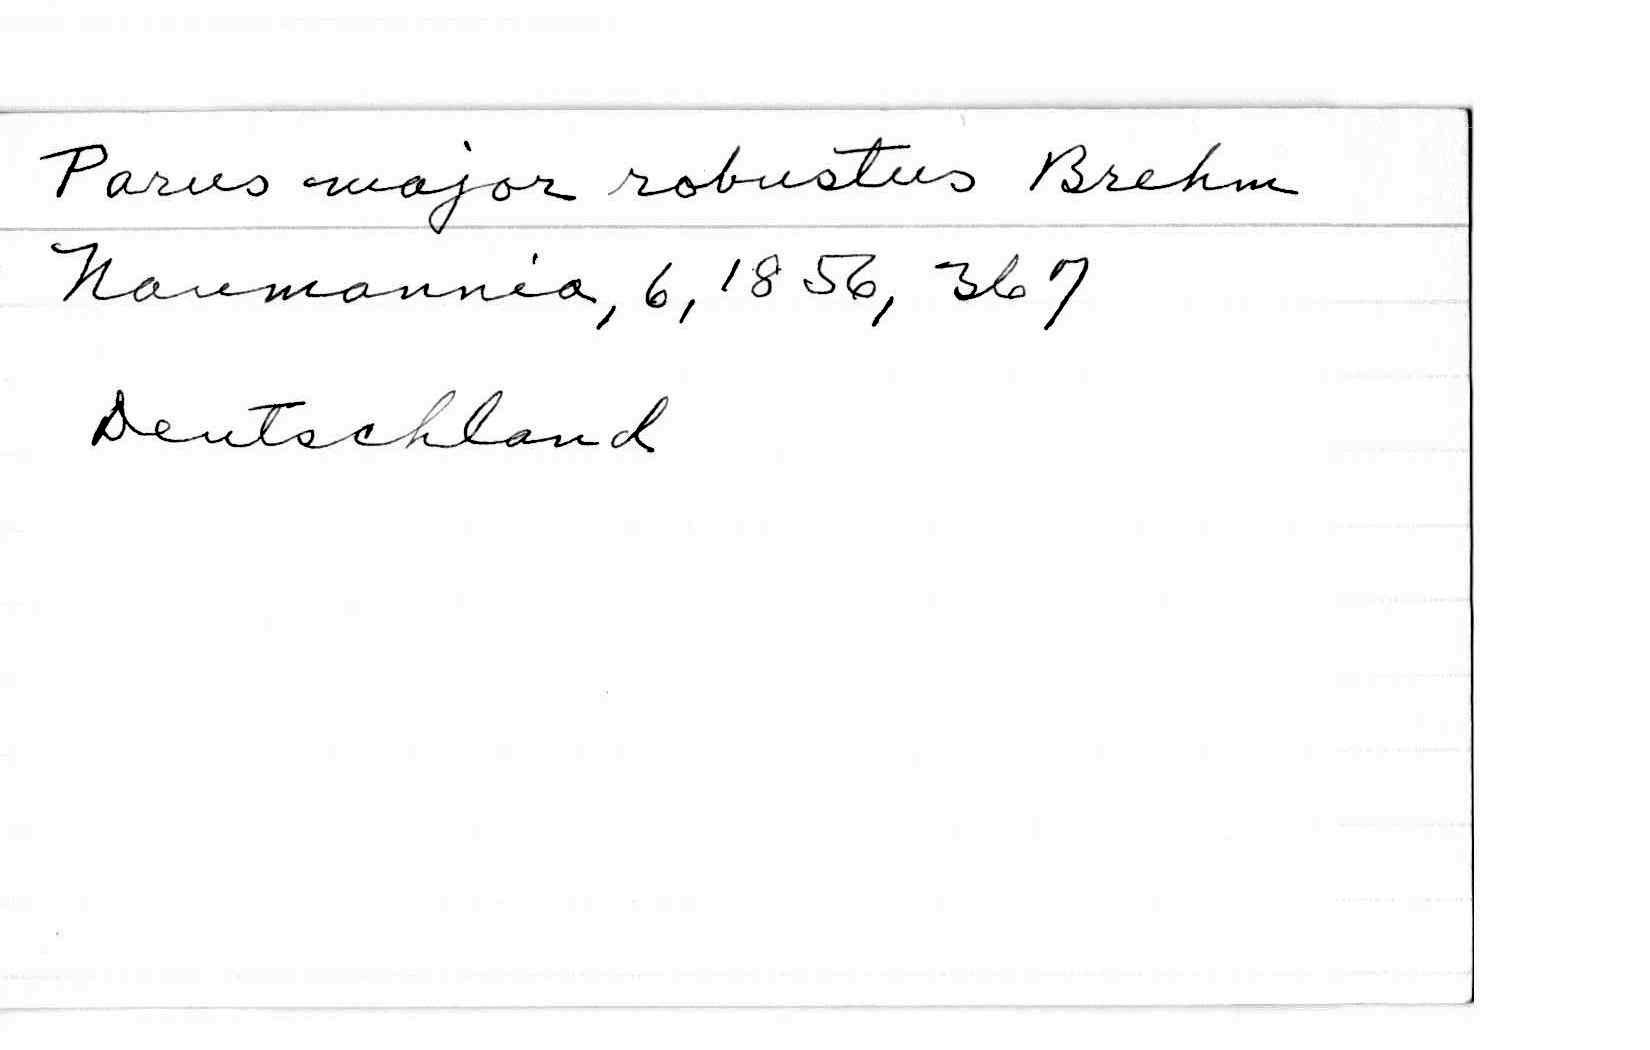 Parus major robustus Brehm
Naumannia, 6, 1856, 367
Deutschland